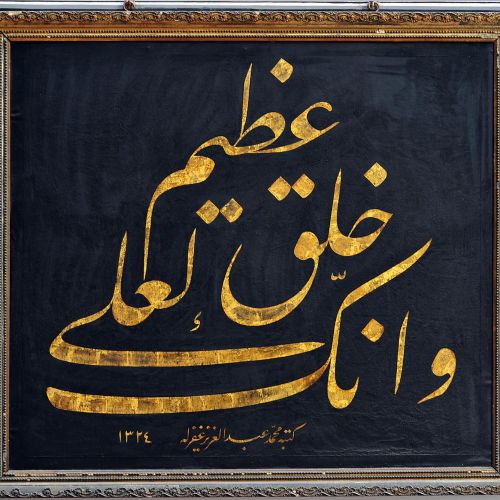 وانّك لعلى خلق عظيم
كتبه محمد عبد العزيز غفر له ١٣٢٤